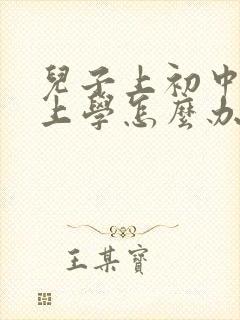 兒子上初中
上學怎麼办
王某寶